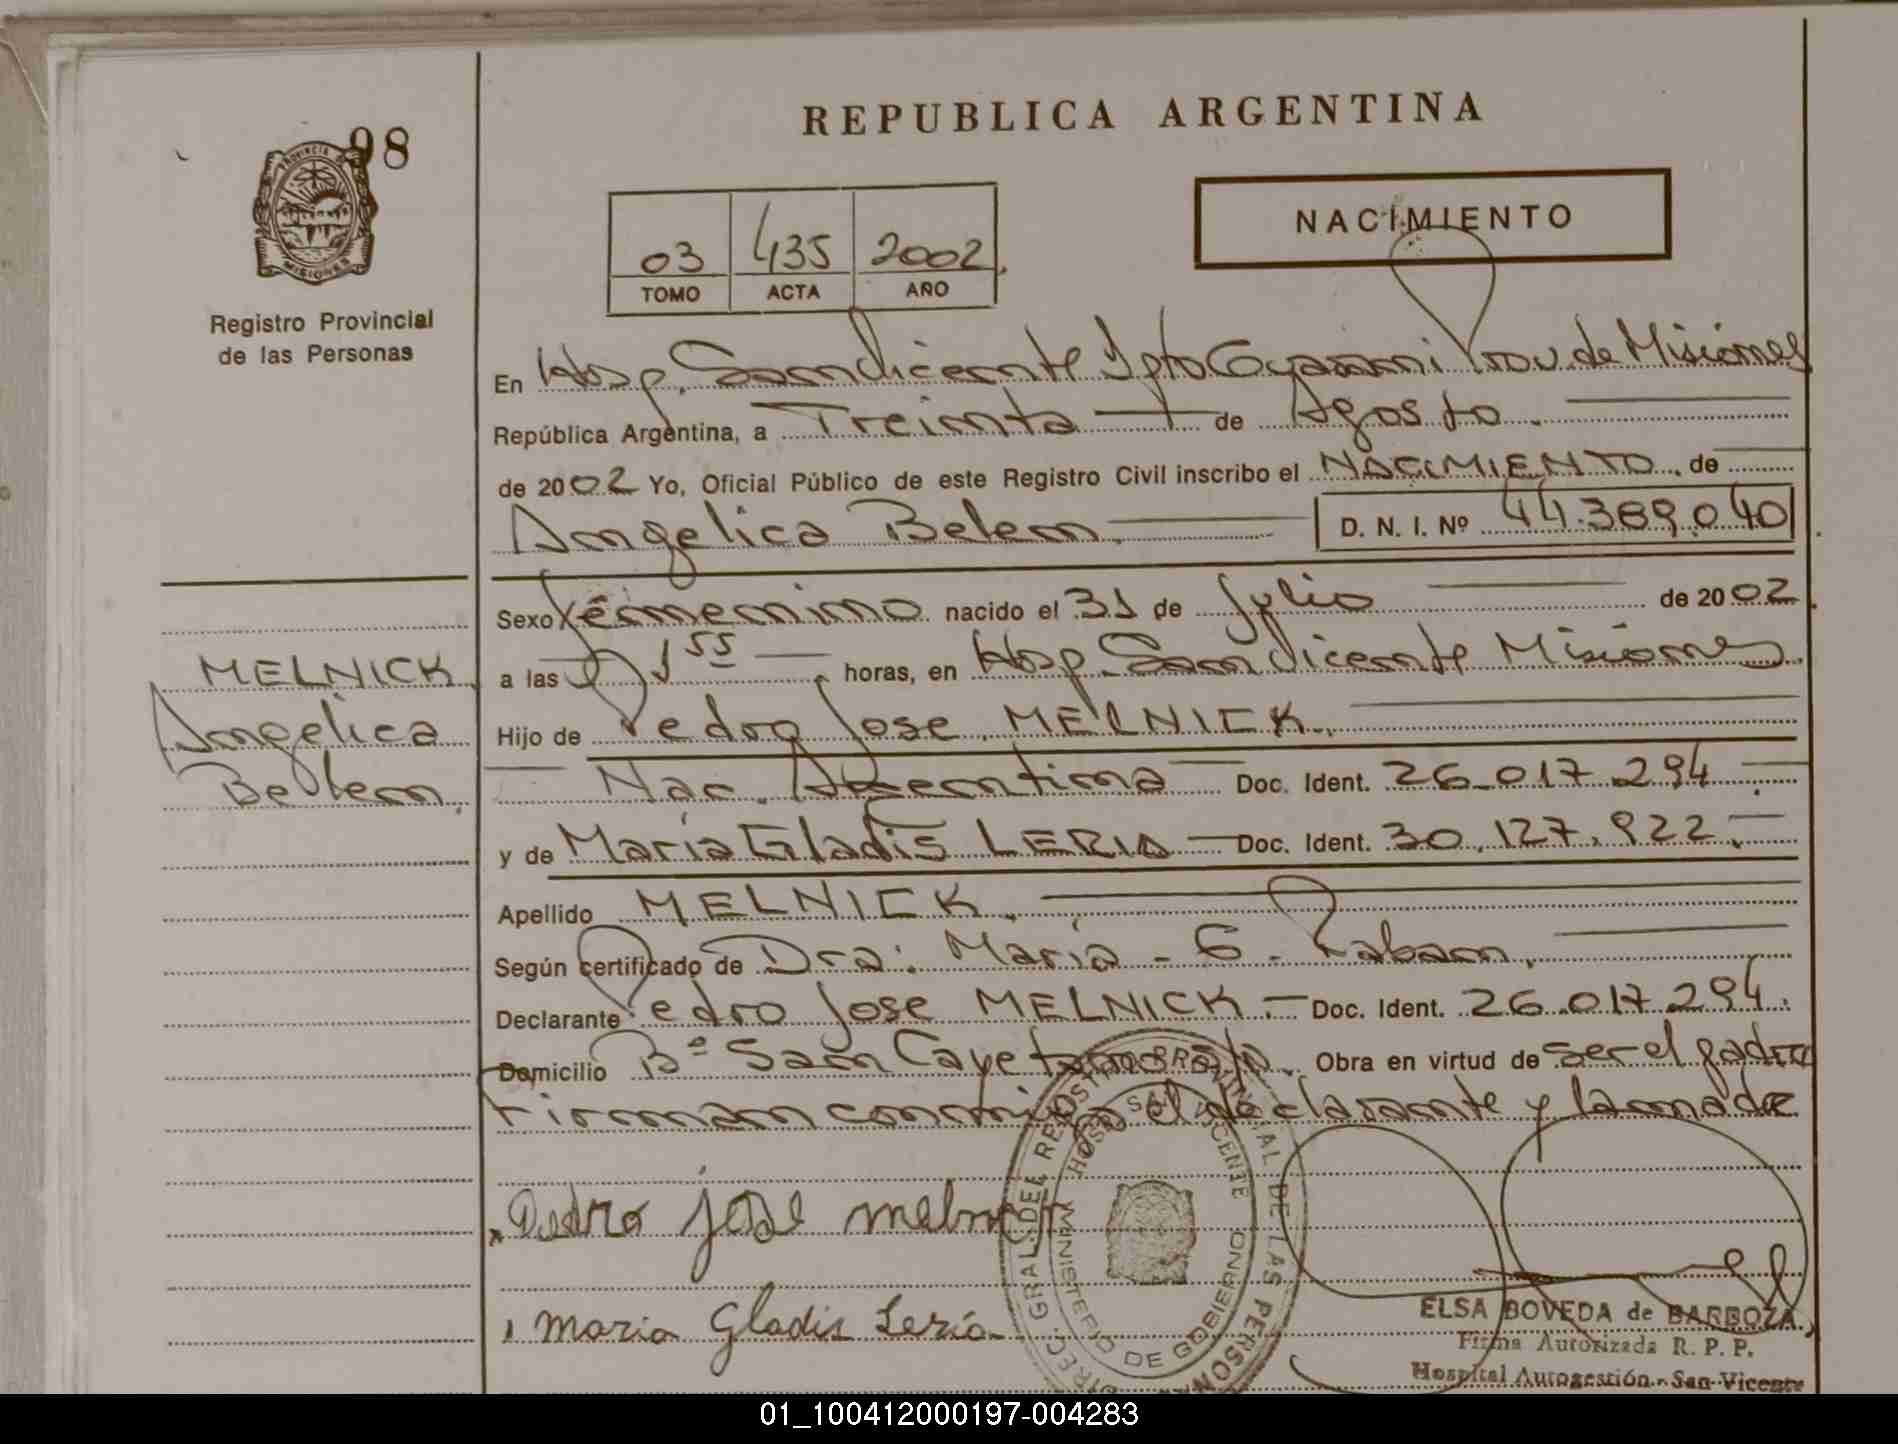 98
PROVINCIA DE
MISIONES
Registro Provincial
de las Personas
REPUBLICA ARGENTINA
03 435 2002
TOMO ACTA AÑO
NACIMIENTO
En Hosp. San Vicente Dpto Guaraní Prov. de Misiones
República Argentina, a Treinta de Agosto.
de 2002 Yo, Oficial Público de este Registro Civil inscribo el NACIMIENTO. de
Angelica Belem. D. N. I. Nº 44.389.040
Sexo femenino nacido el 31 de Julio de 2002
a las 1 55 horas, en Hosp. San Vicente Misiones.
Hijo de Pedro Jose MELNICK.
Nac. Argentina Doc. Ident. 26.017.294
y de María Gladis LERIA Doc. Ident. 30.127.922.
Apellido MELNICK.
Según certificado de Dra: María - G -
Declarante Pedro Jose MELNICK. Doc. Ident. 26.017.294.
Domicilio Bº San Cayetano Obra en virtud de ser el padre
Firman conmigo el declarante y la madre
MELNICK
Angelica
Belem.
Pedro josé
Maria Gladis Leria
DIREC. GRAL. DEL REGISTRO PROVINCIAL DE LAS PERSONAS
HOSP. SAN VICENTE
MINISTERIO DE GOBIERNO
ELSA BOVEDA de BARBOZA
Firma Autorizada R. P. P.
Hospital Autogestión - San Vicente
01_100412000197-004283